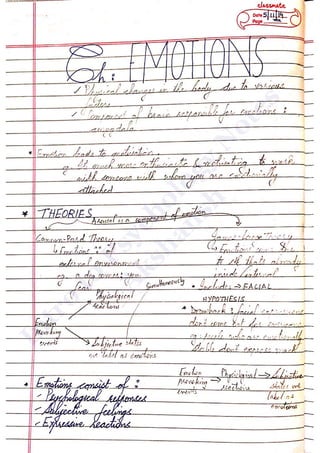 classmate
Date 5/11/19
Page
Ch: EMOTIONS
✓ Physical changes in the body due to various
factors
✓ Component of brain responsible for emotions :
amygdala
* Emotion leads to motivation.
eg. It's much more enthusiastic & motivating to work
with someone with whom you are emotionally
attached
* THEORIES
Arousal is a component of emotion
Cannon-Bard Theory
↳ Emotions : of
external environment
eg. a dog comes; you
fear
James-Lange Theory
↳ Emotions
that's already
inside
• Includes → FACIAL
HYPOTHESIS
• Drawback : facial expressions
don't come out for everyone
eg. people who are emotionally
stable don't express much
Simultaneously
Physiological
reactions
Emotion
Provoking
events
Subjective states
we label as emotions
Emotion
Provoking
events
→ Physiological
reactions
→ Subjective
states we
label as
emotions
* Emotions consist of :
- Psychological responses
- Subjective feelings
- Expressive Reactions